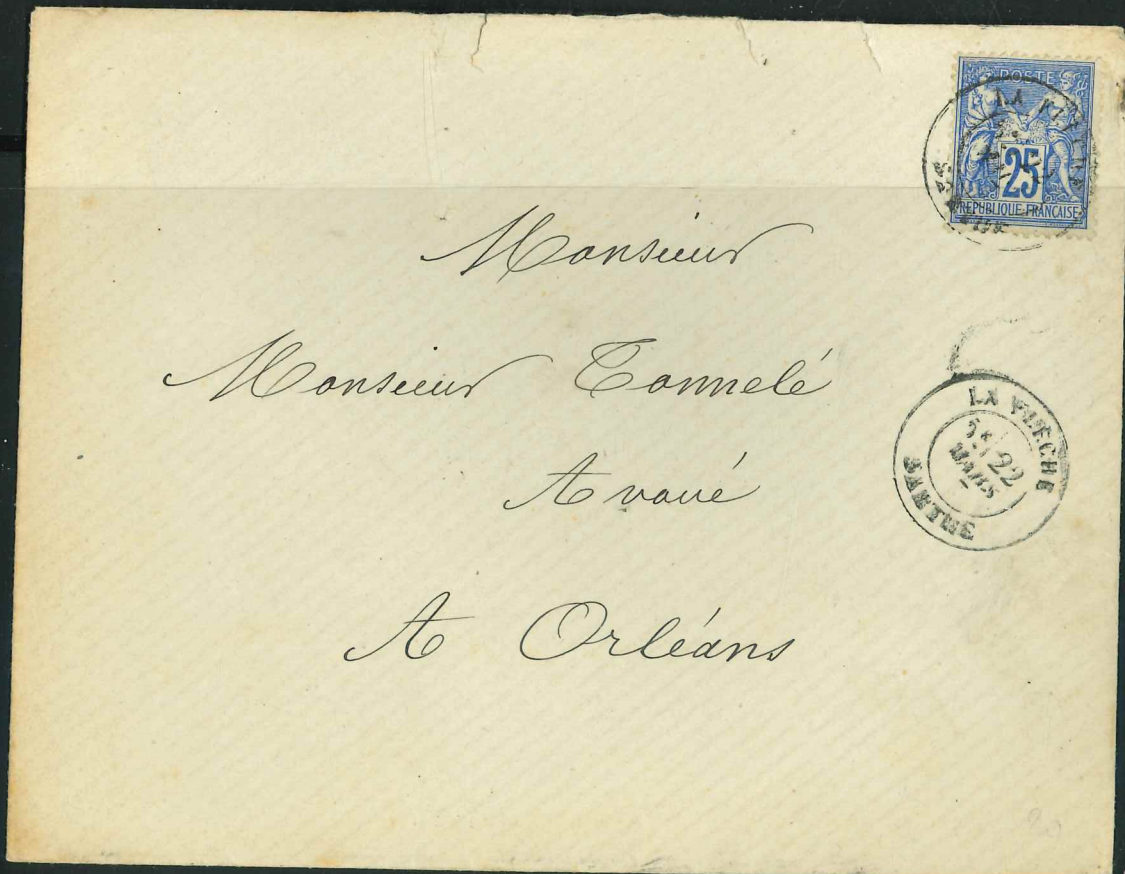 POSTE
25
REPUBLIQUE FRANÇAISE
Monsieur
Monsieur Tonnelé
Avoué
A Orléans
LA FLÈCHE
22
MARS
SARTHE